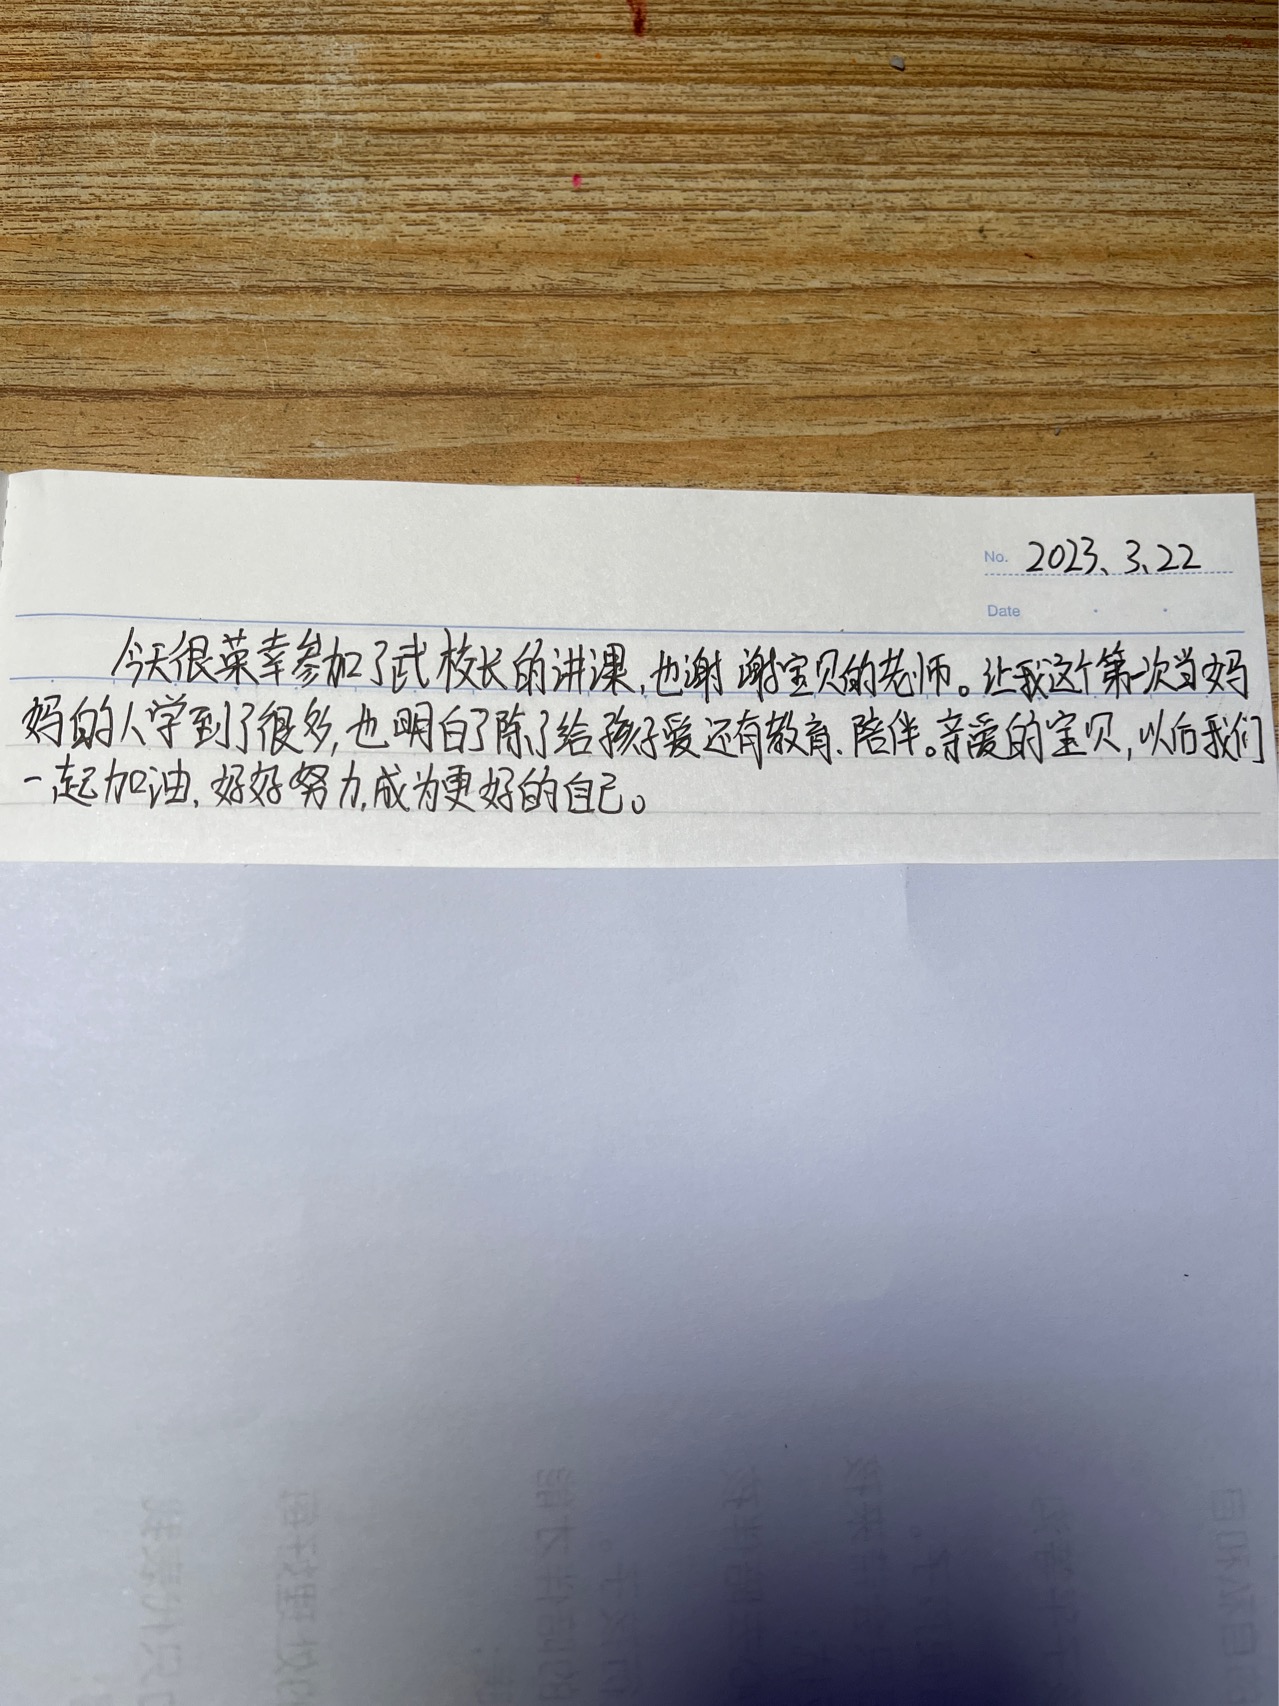 No. 2023、3、22
Date
今天很荣幸参加了武校长的讲课,也谢谢宝贝的老师。让我这个第一次当妈
妈的人学到了很多,也明白了除了给孩子爱还有教育、陪伴。亲爱的宝贝,以后我们
一起加油,好好努力,成为更好的自己。